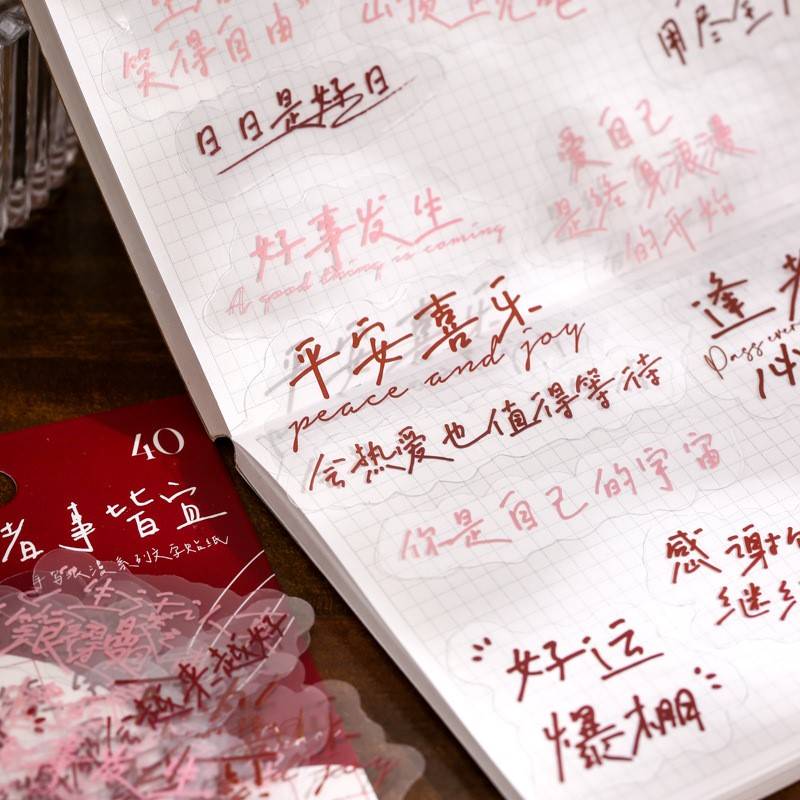 笑得自由"
日日是好日
用尽全
爱自己
是终身浪漫
的开始
好事发生
A good thing is coming
平安喜乐
peace and joy
逢
Pass ever
会热爱也值得等待
你是自己的宇宙
感谢
继续
"好运
爆棚"
40
者事皆宜
手写浪漫系列文字贴纸
越来越好